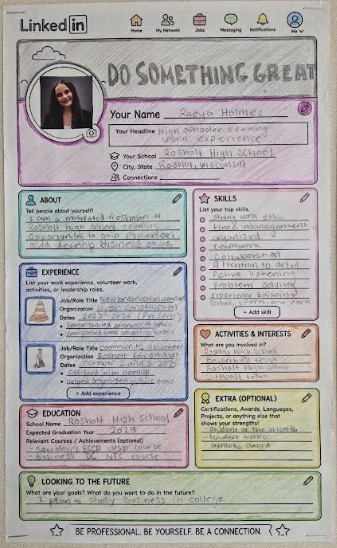 Linked in
Home My Network Jobs Messaging Notifications Me
DO SOMETHING GREAT
Your Name Raeya Holmes
Your Headline High schooler seeking
work experience
Your School Rosholt High School
City, State Rosholt, Wisconsin
Connections
ABOUT
Tell people about yourself!
I am a motivated freshman at
Rosholt High School seeking
opportunities to gain
and develop business skills.
SKILLS
List your top skills.
strong work ethic
time management
organized
teamwork
collaboration
Attention to detail
Active listening
problem solving
Experience balancing
+ Add skill
EXPERIENCE
List your work experience, volunteer work,
activities, or leadership roles.
Job/Role Title
Organization Construction
Dates 2023-2026 (Present)
Job/Role Title Community Volunteer
Organization Rosholt
Dates
Helped organize
+ Add experience
ACTIVITIES & INTERESTS
What are you involved in?
Rosholt High School
Basketball
Rosholt High School
EDUCATION
School Name Rosholt High School
Expected Graduation Year 2029
Relevant Courses / Achievements (optional)
- Sociology course
- Business course
EXTRA (OPTIONAL)
Certifications, Awards, Languages,
Projects, or anything else that
shows your strengths!
- Student of the month
award
LOOKING TO THE FUTURE
What are your goals? What do you want to do in the future?
I plan to study business in college
BE PROFESSIONAL. BE YOURSELF. BE A CONNECTION.